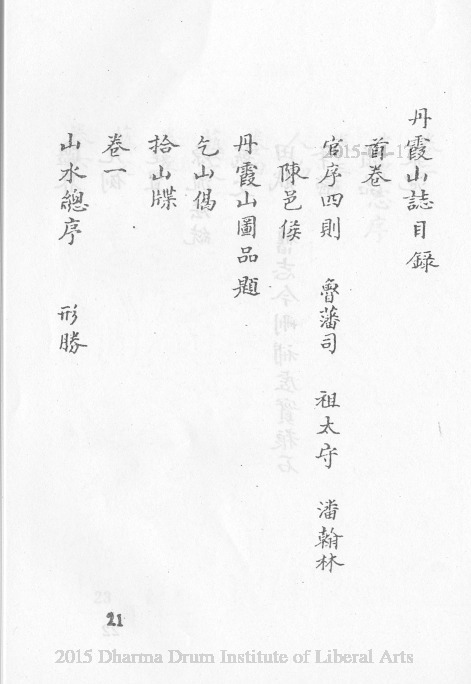 丹霞山誌目錄
首卷
官序四則 魯藩司 祖太守 潘翰林
陳邑侯
丹霞山圖品題
乞山偈
拾山牒
卷一
山水總序 形勝
21
2015 Dharma Drum Institute of Liberal Arts